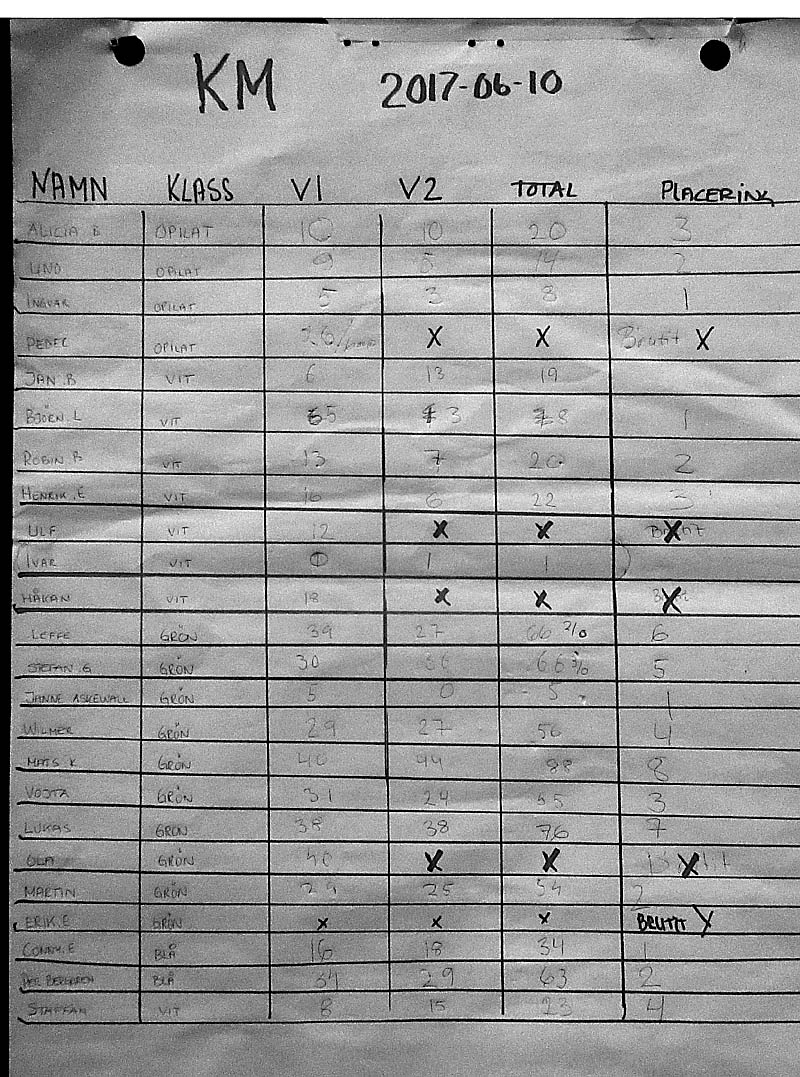 KM 2017-06-10
NAMN KLASS V1 V2 TOTAL PLACERING
ALICIA B OPILAT 10 10 20 3
LINO OPILAT 9 5 14 2
INGVAR OPILAT 5 3 8 1
OPILAT X X Brutit X
JAN.B VIT 6 13 19
BJÖRN.L VIT 5 3 8 1
ROBIN B VIT 13 7 20 2
HENRIK.E VIT 16 6 22 3
ULF VIT 12 X X X
IVAR VIT 0 1 1
HÅKAN VIT 18 X X X
LEFFE GRÖN 39 27 66 6
STEFAN.G GRÖN 30 36 66 5
JANNE ASKEWALL GRÖN 5 0 5 1
WILMER GRÖN 29 27 56 4
MATS K GRÖN 44 88 8
VOJTA GRÖN 31 24 55 3
LUKAS GRÖN 38 38 76 7
OLA GRÖN 40 X X X
MARTIN GRÖN 29 25 54 2
ERIK.E GRÖN X X X BRUTIT X
CONNY.E BLÅ 16 18 34 1
PER BERGGREN BLÅ 34 29 63 2
STAFFAN VIT 8 15 23 4